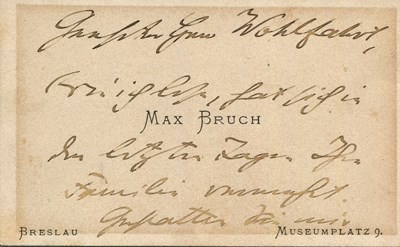 Geehrter Herr Wohlfahrt,
wie ich lese, hat sich in
MAX BRUCH
den letzten Tagen Ihre
Familie vermehrt
Gestatten Sie mir
BRESLAU MUSEUMPLATZ 9.